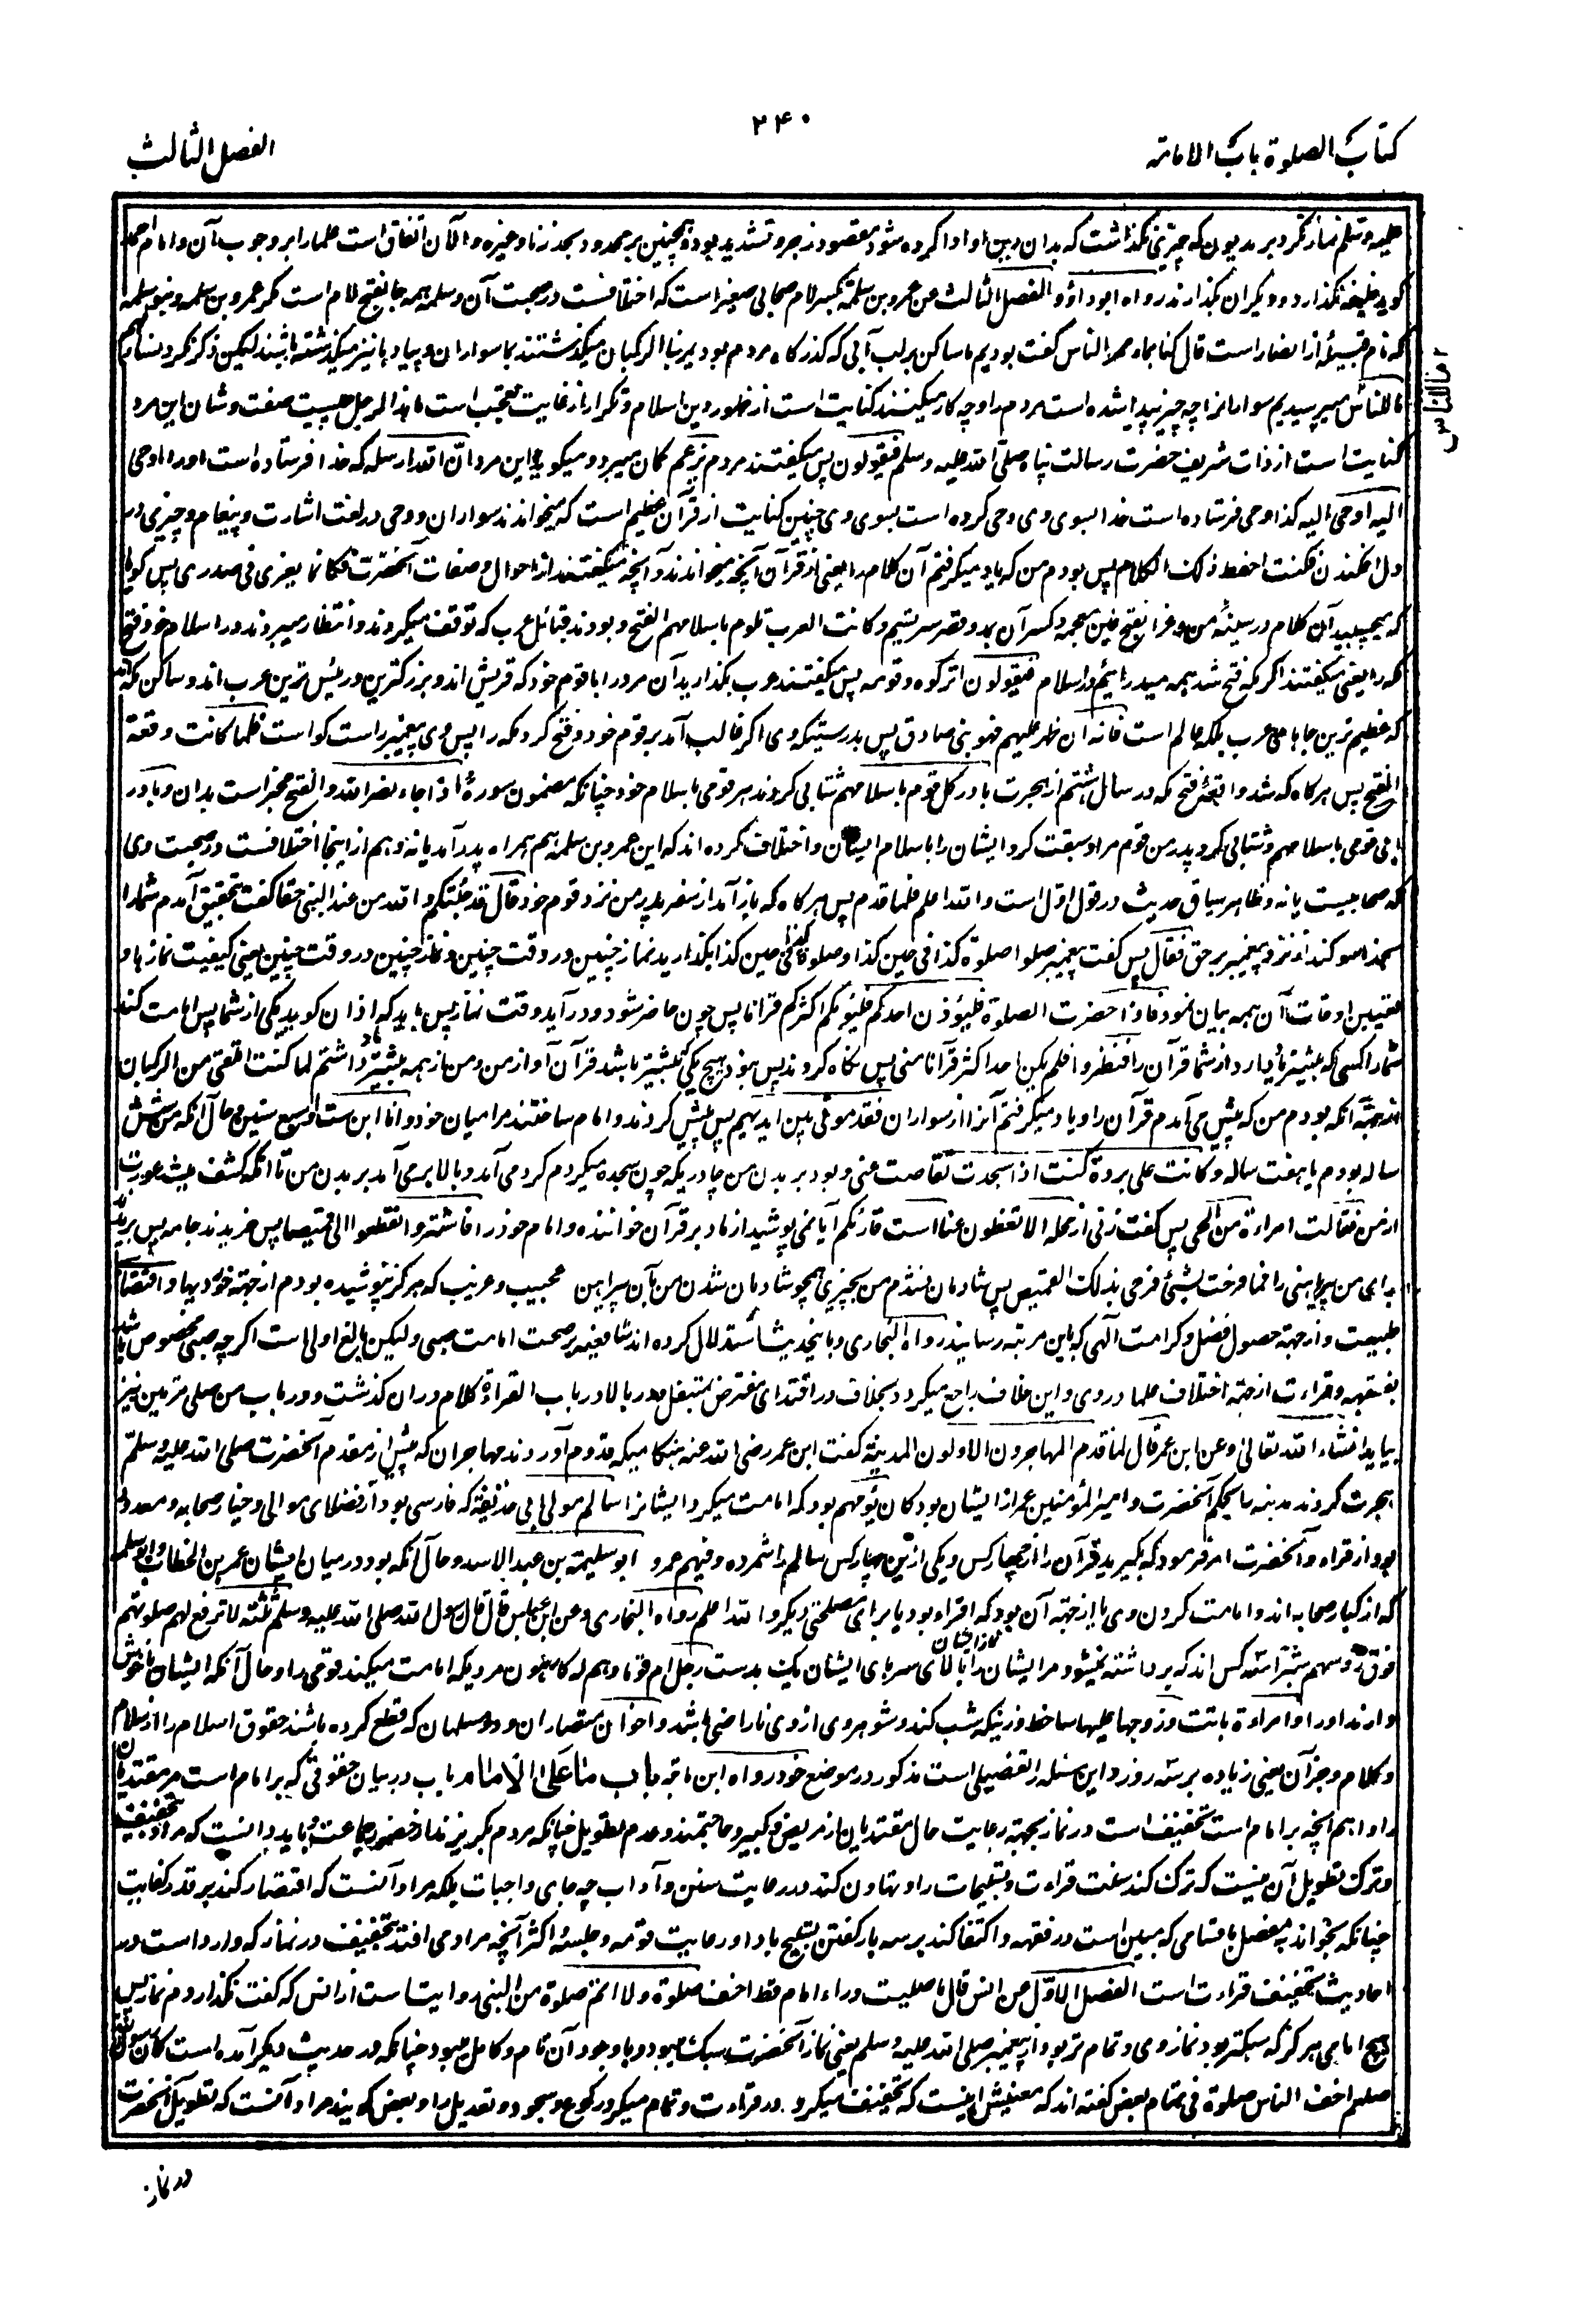 ۲۴۰
کتاب الصلوة باب الامامة
الفصل الثالث
علیه وسلم نماز نکرد بر مدیون که چیزی نگذاشت که بدان دین او ادا کرده شود مقصود زجر و تشدید بود و همچنین بر محدود بحد زنا و غیره و الآن اتفاق است علما را بر وجوب آن و امام احمد
گوید خلیفه نگذارد و دیگران بگذارند رواه ابوداؤد الفصل الثالث عن عمرو بن سلمة بکسر لام صحابی صغیر است که اختلافست در صحبت آن و سلمه همه جا بفتح لام است مگر عمرو بن سلمه و بنو سلمه
که نام قبیله از انصار است قال کنا بماء ممر الناس گفت بودیم ما ساکن بر لب آبی که گذرگاه مردم بود یمر بنا الرکبان میگذشتند بما سواران و پیاده پا نیز میگذشته باشند لیکن ذکر نکرد نسألهم
ما للناس میپرسیدیم سوارانرا چه چیز پیدا شده است مردم را و چه کار میکنند کنایت است از ظهور دین اسلام و تکرار از غایت تعجب است ما هذا الرجل چیست صفت و شان این مرد
کنایت است از ذات شریف حضرت رسالت پناه صلی الله علیه وسلم فیقولون پس میگفتند مردم یزعم گمان میبرد و میگوید این مرد ان الله ارسله که خدا فرستاده است او را اوحی
الیه اوحی الیه کذا وحی فرستاده است خدا بسوی وی وحی کرده است بسوی وی چنین کنایت از قرآن عظیم است که میخواندند سواران و وحی در لغت اشارت و پیغام و چیزی در
دل افکندن فکنت احفظ ذلک الکلام پس بودم من که یاد میگرفتم آن کلام را یعنی از قرآن آنچه میخواندند و آنچه میگفتند از احوال و صفات آنحضرت فکانما یغری فی صدری پس گویا
که میچسپید آن کلام در سینه من و غرا بفتح غین معجمه و کسر آن بمد و قصر سریشم و کانت العرب تلوم باسلامهم الفتح و بودند قبائل عرب که توقف میکردند و انتظار میبردند در اسلام خود فتح
مکه را یعنی میگفتند اگر مکه فتح شد همه میدرائیم در اسلام فیقولون اترکوه و قومه پس میگفتند عرب بگذارید آن مرد را با قوم خود که قریش اند و بزرگترین و رئیس ترین عرب اند و ساکن مکه اند
که عظیم ترین جاهای عرب بلکه عالم است فانه ان ظهر علیهم فهو نبی صادق پس بدرستیکه وی اگر غالب آمد بر قوم خود و فتح کرد مکه را پس وی پیغمبر راست گو است فلما کانت وقعة
الفتح پس هر گاه که شد واقعه فتح مکه در سال هشتم از هجرت بادر کل قوم باسلامهم شتابی کردند هر قومی باسلام خود چنانکه مضمون سوره اذا جاء نصر الله و الفتح مخبر است بدان و بادر
ابی قومی باسلامهم و شتابی کرد پدر من قوم مرا و سبقت کرد ایشان را باسلام ایشان و اختلاف کرده اند که این عمرو بن سلمه هم همراه پدر آمد یا نه و هم از اینجا اختلافست در صحبت وی
که صحابیست یا نه و ظاهر سیاق حدیث در قول اول است و الله اعلم فلما قدم پس هر گاه که باز آمد از سفر پدر من نزد قوم خود قال قد جئتکم و الله من عند النبی حقا گفت بتحقیق آمدم شما را
بخدا سوگند از نزد پیغمبر بر حق فقال پس گفت پیغمبر صلوا صلوة کذا فی حین کذا و صلوة کذا فی حین کذا بگذارید نماز چنین در وقت چنین و نماز چنین در وقت چنین یعنی کیفیت نمازها و
تعیین اوقات آن همه بیان نمود فاذا حضرت الصلوة فلیؤذن احدکم فلیؤمکم اکثرکم قرانا پس چون حاضر شود و درآید وقت نماز پس باید که اذان گوید یکی از شما پس امامت کند
شما را کسی که بیشتر یاد دارد از شما قرآن را فنظروا فلم یکن احد اکثر قرآنا منی پس نگاه کردند پس نبود هیچ یکی بیشتر باشد قرآن او از من و من از همه بیشتر یاد داشتم لما کنت اتلقی من الرکبان
از جهة آنکه بودم من که پیش می آمدم قرآن را و یاد میگرفتم آنرا از سواران فقدمونی بین ایدیهم پس پیش کردند و امام ساختند مرا میان خود و انا ابن ست او سبع سنین و حال آنکه من شش
ساله بودم یا هفت ساله و کانت علی بردة کنت اذا سجدت تقلصت عنی و بود بر بدن من چادری که چون سجده میکردم گرد می آمد و بالا بر می آمد بر بدن من تا آنکه کشف میشد عورت
از من فقالت امراءة من الحی پس گفت زنی از محله الا تغطون عنا است قارئکم آیا نمی پوشید از ما دبر قرآن خواننده و امام خود را فاشتروا فقطعوا لی قمیصا پس خریدند جامه پس بریدند
برای من پیراهنی را فما فرحت بشیء فرحی بذلک القمیص پس شادمان نشدم من بچیزی همچو شادمان شدن من بآن پیراهن عجیب و غریب که هرگز نپوشیده بودم از جهة خوردیها و اقتضای
طبیعت و از جهة حصول فضل و کرامت الهی که باین مرتبه رسانید رواه البخاری و باینحدیث استدلال کرده اند شافعیه بر صحت امامت صبی و لیکن بالغ اولی است اگرچه صبی مخصوص باشد
بفقه و قراءت از جهة اختلاف علما در وی و این خلاف راجع میگردد بخلاف در اقتدای مفترض بمتنفل و در بالا در باب القراءة کلام در ان گذشت و در باب من صلی مرتین نیز
بیاید انشاء الله تعالی وعن ابن عمر قال لما قدم المهاجرون الاولون المدینة گفت ابن عمر رضی الله عنه هنگامیکه قدوم آوردند مهاجران که پیش از مقدم آنحضرت صلی الله علیه وسلم
هجرت کردند مدینه را بحکم آنحضرت و امیر المؤمنین عمر از ایشان بود کان یؤمهم بود که امامت میکرد ایشانرا سالم مولی ابی حذیفة که فارسی بود از فضلای موالی و خیار صحابه و معدود
بود از قراء و آنحضرت امر فرمود که بگیرید قرآن را از چهار کس و یکی ازین چهار کس سالم را شمرده و فیهم عمر و ابو سلمة بن عبد الاسد و حال آنکه بود در میان ایشان عمر بن الخطاب و ابو سلمه
که از کبار صحابه اند و امامت کردن وی یا از جهة آن بود که اقراء بود یا برای مصلحتی دیگر و الله اعلم رواه البخاری وعن ابن عباس قال قال رسول الله صلی الله علیه وسلم ثلثة لا ترفع لهم صلوتهم
فوق رؤسهم شبرا سه کس اند که برداشته نمیشود مر ایشان را نماز ایشان بالای سرهای ایشان یک بدست رجل ام قوما و هم له کارهون مردیکه امامت میکند قومی را و حال آنکه ایشان ناخوش
دارند او را و امراءة باتت و زوجها علیها ساخط و زنیکه شب کند و شوهر وی از وی ناراضی باشد و اخوان متصارمان و دو مسلمان که قطع کرده باشند حقوق اسلام را از سلام
و کلام و جز آن یعنی زیاده بر سه روز و این مسئله را تفصیلی است مذکور در موضع خود رواه ابن ماجه باب ما علی الامام باب در بیان حقوقی که بر امام است مر مقتدیان
را و اهم آنچه بر امام است تخفیف است در نماز بجهة رعایت حال مقتدیان از مریض و کبیر و حاجتمند و عدم تطویل چنانکه مردم بگریزند از حضور جماعت و باید دانست که مراد بتخفیف
و ترک تطویل آن نیست که ترک کند سنت قراءت و تسبیحات را و تهاون کند در رعایت سنن و آداب چه جای واجبات بلکه مراد آنست که اقتصار کند بر قدر کفایت
چنانکه بخواند مفصل باقسامی که مبین است در فقه و اکتفا کند بر سه بار گفتن تسبیح با او رعایت قومه و جلسه اکثر آنچه مراد می افتد تخفیف در نماز که وارد است در
احادیث تخفیف قراءت است الفصل الاول عن انس قال ما صلیت وراء امام قط اخف صلوة ولا اتم صلوة من النبی روایت است از انس که گفت نگذاردم نماز پس
هیچ امامی هرگز که سبکتر بود نماز وی و تمام تر بود از پیغمبر صلی الله علیه وسلم یعنی نماز آنحضرت سبک میبود و با وجود آن تام و کامل میبود چنانکه در حدیث دیگر آمده است کان رسول الله
صلعم اخف الناس صلوة فی تمام بعض گفته اند که معنیش اینست که تخفیف میکرد در قراءت و تمام میکرد رکوع و سجود و تعدیل را و بعض گویند مراد آنست که تطویل آنحضرت
در نماز
ما للناس